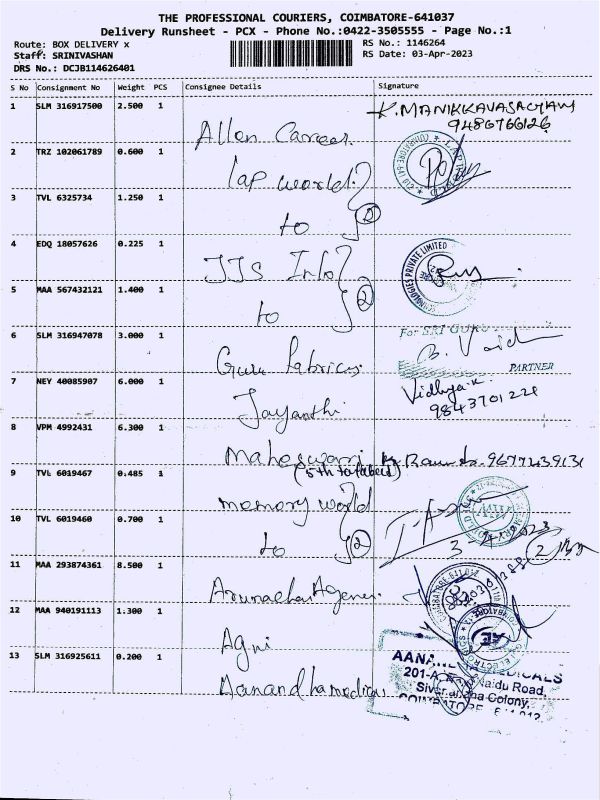 THE PROFESSIONAL COURIERS, COIMBATORE-641037
Delivery Runsheet - PCX - Phone No.:0422-3505555 - Page No.:1
Route: BOX DELIVERY x
RS No.: 1146264
Staff: SRINIVASHAN
RS Date: 03-Apr-2023
DRS No.: DCJB114626401
S No Consignment No Weight PCS Consignee Details Signature
1 SLM 316917500 2.500 1 Allen Career K. MANIKKAVASAGAM
9486766126
2 TRZ 102061789 0.600 1 lap world
3 TVL 6325734 1.250 1 to 2
4 EDQ 18057626 0.225 1 JJS Info
TECHNOLOGIES PRIVATE LIMITED
5 MAA 567432121 1.400 1 to 2
6 SLM 316947078 3.000 1 Guru fabrics For SRI GURU
PARTNER
7 NEY 40085907 6.000 1 Jayanthi Vidhya.k.
9843701221
8 VPM 4992431 6.300 1 Maheswari 9677439131
9 TVL 6019467 0.485 1 memory world
10 TVL 6019460 0.700 1 to 2
11 MAA 293874361 8.500 1 Arunachal Agencies
12 MAA 940191113 1.300 1 Agni
13 SLM 316925611 0.200 1 Aanandha medicals
201-A, Naidu Road,
Colony,